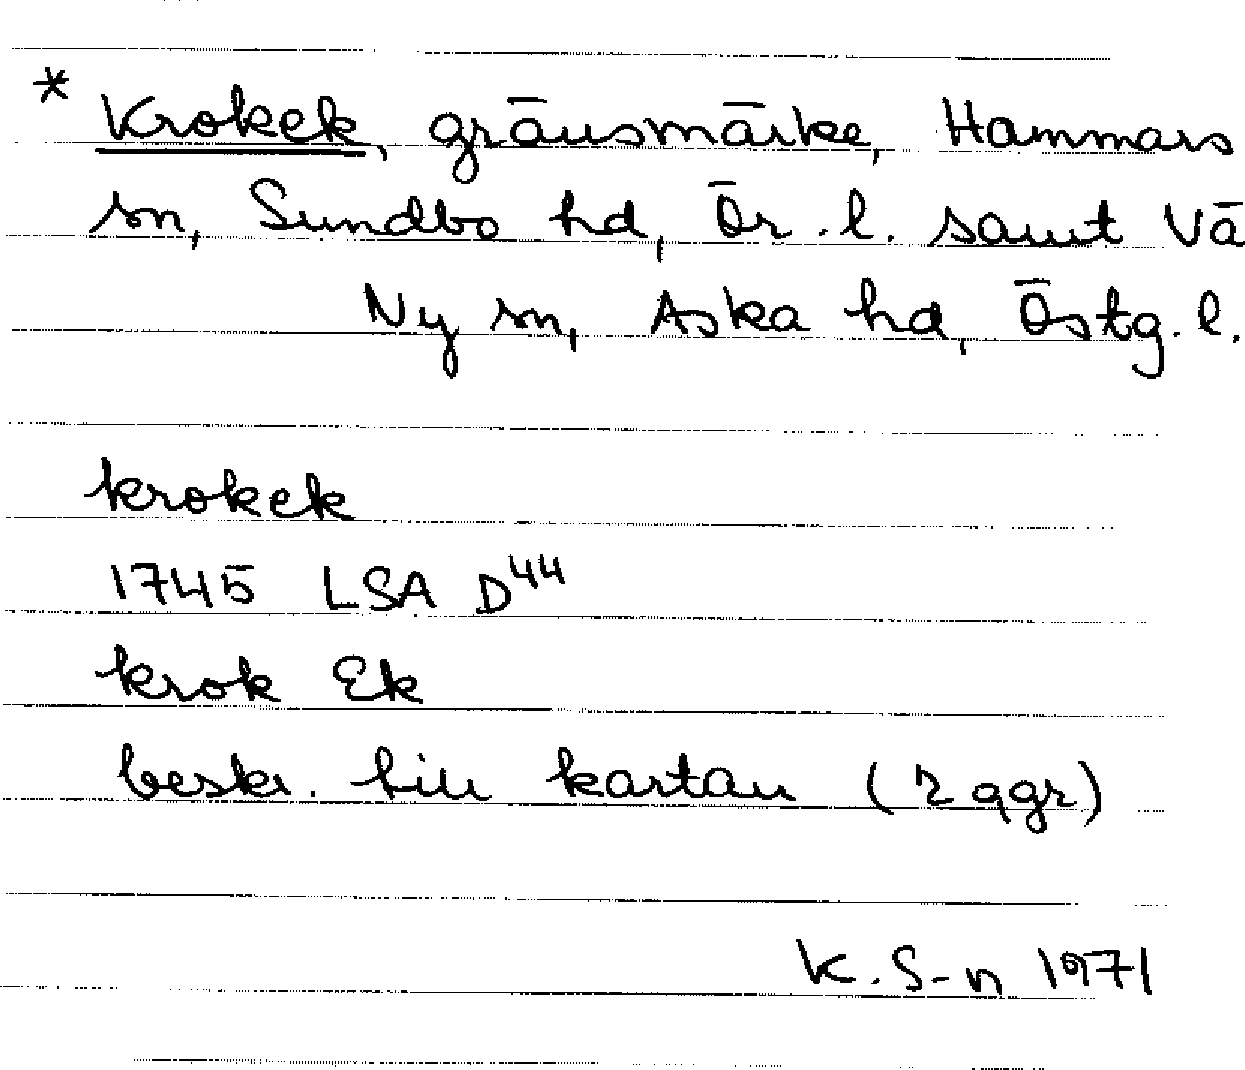 * Krokek, gränsmärke, Hammars
sn, Sundbo hd, Ör. l. samt Vä
Ny sn, Aska hd, Östg. l.
krokek
1745 LSA D44
krok Ek
beskr. till kartan (2 ggr)
K. S-n 1971